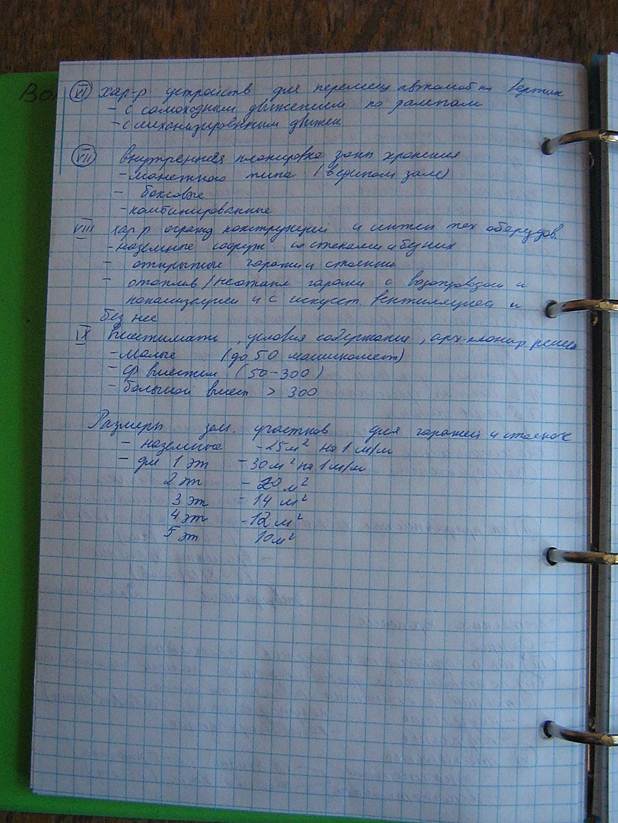 Во
VI хар-р устройств для перемещ автомоб по вертик
- с самоходным движением по рампам
- с механизированным движен
VII внутренняя планировка зоны хранения
- манежного типа (в едином зале)
- боксовые
- комбинированные
VIII хар-р огражд конструкций и тех оборудов.
- наземные со стенами и без них
- открытые гаражи и стоянки
- отоплив/неотапл гаражи с водопровдом и
канализацией и с искуст вентиляцией и
без нее
IX Вместимать, условия содержание, арх-планир решен
- малые (до 50 машиномест)
- ср вместим (50-300)
- большой вмест > 300
Размеры зем. участков для гаражей и стоянок
- наземные - 25м² на 1 м/м
- для 1 эт - 30м² на 1 м/м
2 эт - 20 м²
3 эт - 14 м²
4 эт - 12 м²
5 эт 10м²